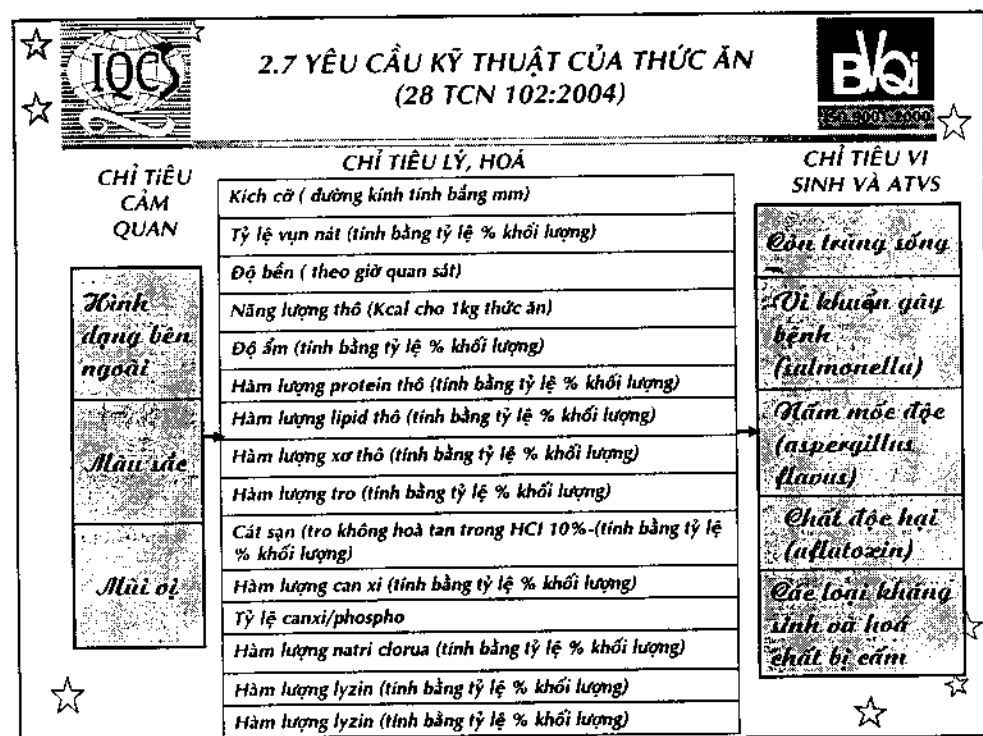 IQCS
2.7 YÊU CẦU KỸ THUẬT CỦA THỨC ĂN
(28 TCN 102:2004)
BVQi
ISO 9001:2000
CHỈ TIÊU
CẢM
QUAN
Hình
dạng bên
ngoài
Màu sắc
Mùi vị
CHỈ TIÊU LÝ, HOÁ
Kích cỡ ( đường kính tính bằng mm)
Tỷ lệ vụn nát (tính bằng tỷ lệ % khối lượng)
Độ bền ( theo giờ quan sát)
Năng lượng thô (Kcal cho 1kg thức ăn)
Độ ẩm (tính bằng tỷ lệ % khối lượng)
Hàm lượng protein thô (tính bằng tỷ lệ % khối lượng)
Hàm lượng lipid thô (tính bằng tỷ lệ % khối lượng)
Hàm lượng xơ thô (tính bằng tỷ lệ % khối lượng)
Hàm lượng tro (tính bằng tỷ lệ % khối lượng)
Cát sạn (tro không hoà tan trong HCl 10%-(tính bằng tỷ lệ
% khối lượng)
Hàm lượng can xi (tính bằng tỷ lệ % khối lượng)
Tỷ lệ canxi/phospho
Hàm lượng natri clorua (tính bằng tỷ lệ % khối lượng)
Hàm lượng lyzin (tính bằng tỷ lệ % khối lượng)
Hàm lượng lyzin (tính bằng tỷ lệ % khối lượng)
CHỈ TIÊU VI
SINH VÀ ATVS
Côn trùng sống
Vi khuẩn gây
bệnh
(salmonella)
Nấm mốc độc
(aspergillus
flavus)
Chất độc hại
(aflatoxin)
Các loại kháng
sinh và hoá
chất bị cấm